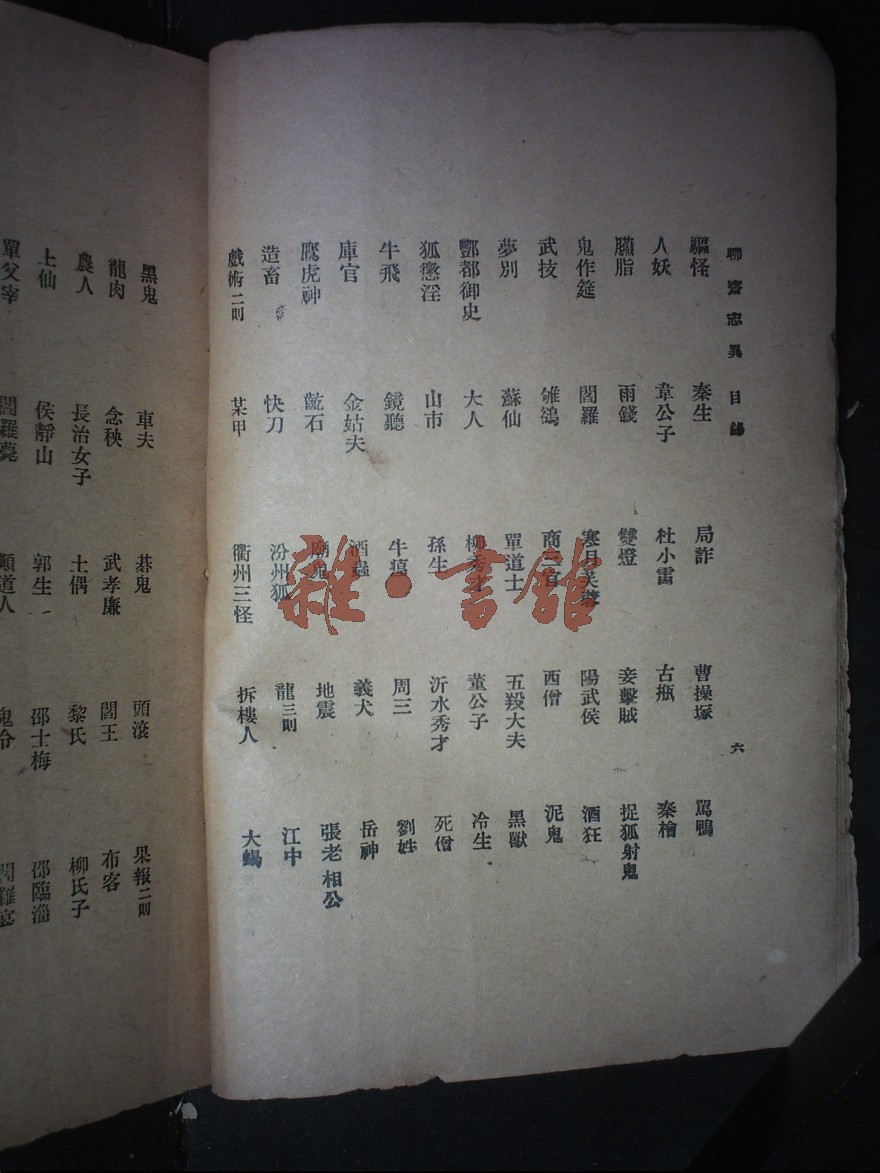 聊齋志異 目錄 六
驅怪 秦生 局詐 曹操塚 罵鴨
人妖 韋公子 杜小雷 古瓶 秦檜
臙脂 雨錢 雙燈 妾擊賊 捉狐射鬼
鬼作筵 閻羅 寒月芙蕖 陽武侯 酒狂
武技 雊鵒 商三官 西僧 泥鬼
夢別 蘇仙 單道士 五羖大夫 黑獸
酆都御史 大人 柳秀才 董公子 冷生
狐懲淫 山市 孫生 沂水秀才 死僧
牛飛 鏡聽 牛𤶊 周三 劉姓
庫官 金姑夫 酒蟲 義犬 岳神
鷹虎神 齕石 廟鬼 地震 張老相公
造畜 快刀 汾州狐 龍三則 江中
戲術二則 某甲 衢州三怪 拆樓人 大蝎
黑鬼 車夫 碁鬼 頭滾 果報二則
龍肉 念秧 武孝廉 閻王 布客
農人 長治女子 土偶 黎氏 柳氏子
上仙 侯靜山 郭生 邵士梅 邵臨淄
單父宰 閻羅薨 顛道人 鬼令 閻羅宴
雜·書舘